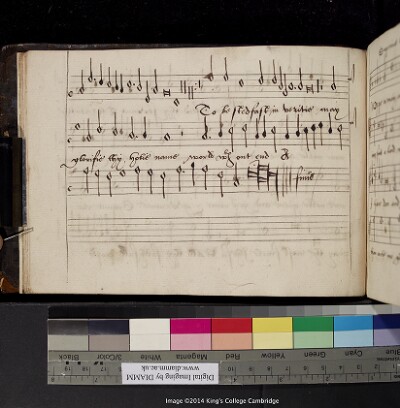 To be stedfast in veritie may
glorifie thy holie name world wth out end
finis
Black 3/Color White Magenta Red Yellow Green Cyan Blue
Digital Imaging by DIAMM
www.diamm.ac.uk
Image ©2014 King's College Cambridge